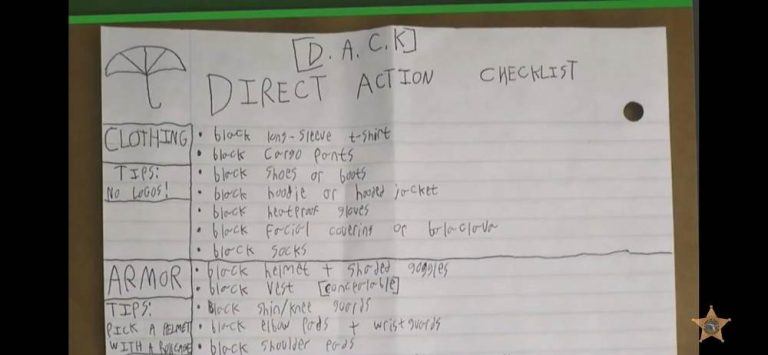 [D.A.C.K]
DIRECT ACTION CHECKLIST
CLOTHING
TIPS:
NO LOGOS!
• black long-sleeve t-shirt
• black cargo pants
• black shoes or boots
• black hoodie or hooded jacket
• black heatproof gloves
• black facial covering or balaclava
• black socks
ARMOR
TIPS:
PICK A HELMET
WITH A
• black helmet + shaded goggles
• black vest [concealable]
• black shin/knee guards
• black elbow pads + wrist guards
• black shoulder pads